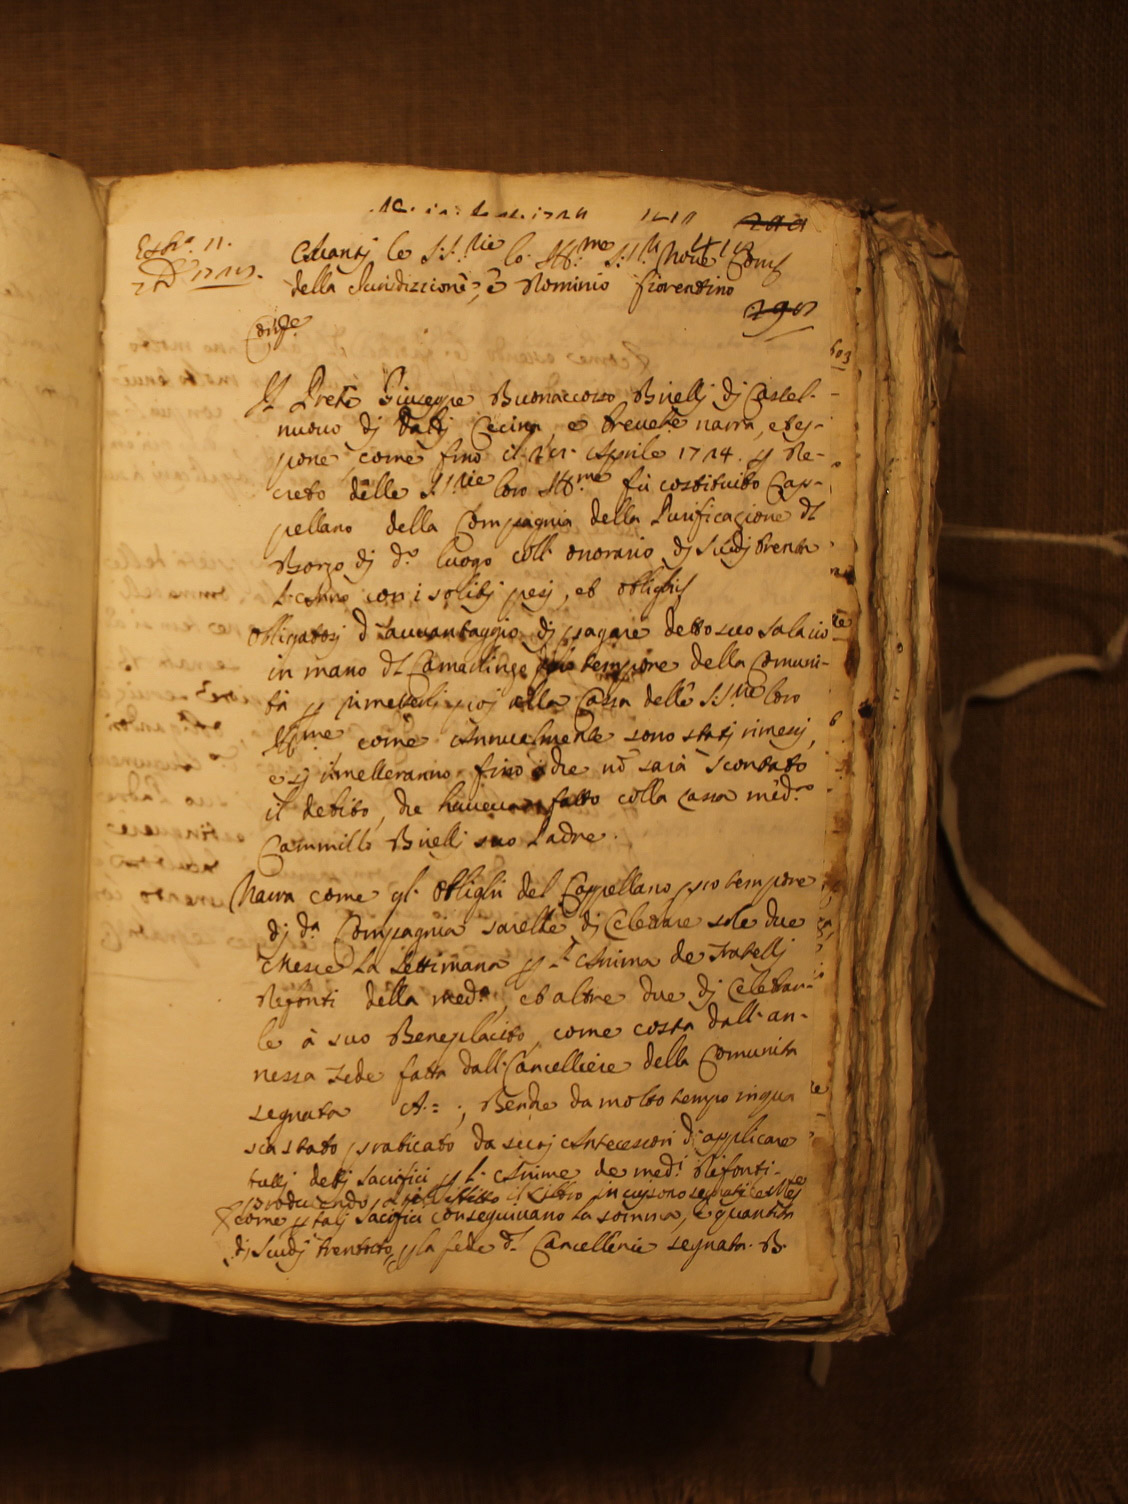 Avanti le S:S:rie lo: Ill:me S:ri Nove Cons:
della Jurisdizzione, e Dominio fiorentino
Il Prete Giuseppe Buonaccorso Birelli di Castel-
nuovo di Val di Cecina, e Breuete narra, et es-
pone come fino il Aprile 1724. p De-
creto delle S:S:rie loro Ill:me fù costituito Cap-
pellano della Compagnia della Purificazione dl
Borgo di d:o luogo coll' onorario di Scudi trenta
l'Anno con i soliti pesi, et oblighi
Obligatosi di pagare detto suo Salario
in mano dl Camarlingo pro tempore della Comuni-
tà p rimetterli poi alla Cassa delle S:S:rie loro
Ill:me, come Annualmente sono stati rimessi,
e si rimetteranno fino che nō sarà scontato
il debito, che haveva fatto colla Cassa med:a
Cammillo Birelli suo Padre.
Narra come gl' oblighi del Cappellano pro tempore
di d:a Compagnia sarebbe di Celebrare sole due
Messe la Settimana p l'Anima de Fratelli
Defonti della med:a, et altre due di Celebrar-
le à suo Beneplacito, come costa dall' an-
nessa Fede fatta dall' Cancelliere della Comunità
segnata A= ; Benche da molto tempo in qua
sia stato praticato da suoi Antecessori di applicare
tutti detti Sacrifici p l' Anime de med:i Defonti.
Producendo il Libro in cui sono segnate le Messe
come p tali Sacrifici conseguivano la somma, e quantità
di Scudi trentotto, p la fede d: Cancellerie segnata. B.